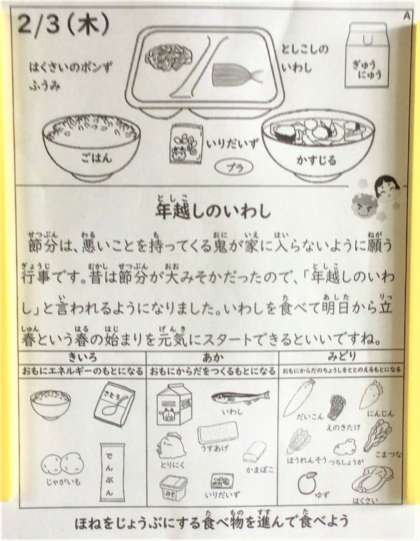 2/3（木）
A
はくさいのポンず
ふうみ
としこしの
いわし
ぎゅう
にゅう
ごはん
いりだいず
プラ
かすじる
年越しのいわし
節分は、悪いことを持ってくる鬼が家に入らないように願う
行事です。昔は節分が大みそかだったので、「年越しのいわ
し」と言われるようになりました。いわしを食べて明日から立
春という春の始まりを元気にスタートできるといいですね。
きいろ
おもにエネルギーのもとになる
あか
おもにからだをつくるもとになる
みどり
おもにからだのちょうしをととのえるもとになる
さとう
じゃがいも
でんぷん
いわし
うすあげ
とりにく
かまぼこ
いりだいず
だいこん
えのきたけ
にんじん
ほうれんそう
つちしょうが
こまつな
ゆず
はくさい
ほねをじょうぶにする食べ物を進んで食べよう